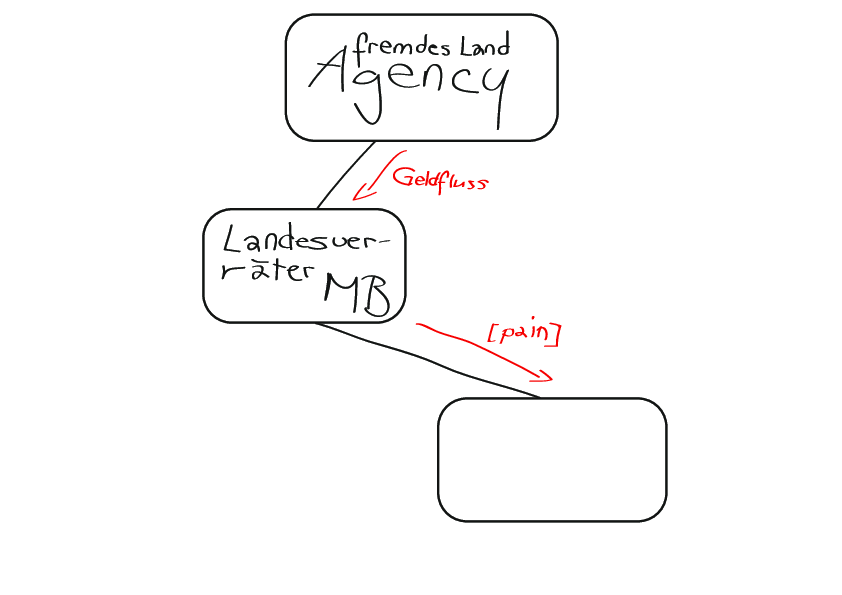 fremdes Land
Agency
Geldfluss
Landesver-
räter
MB
[pain]